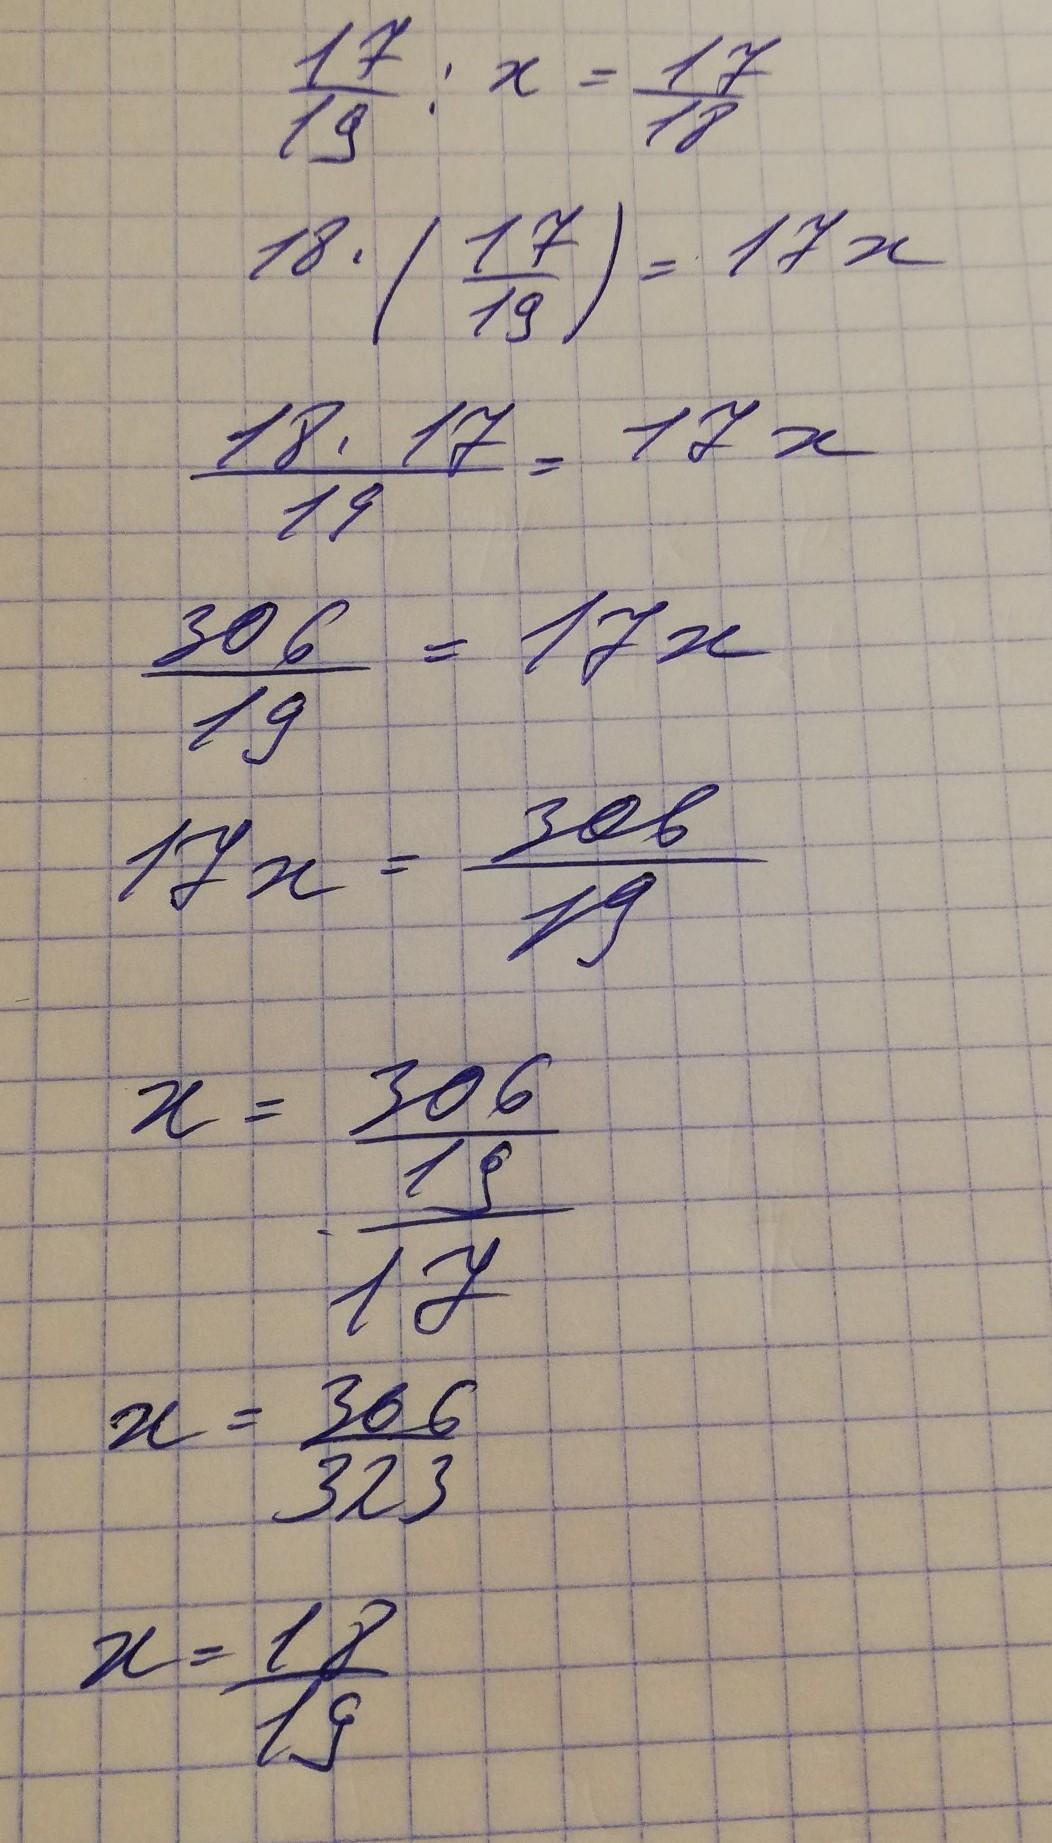 17/19 : x = 17/18
18 · (17/19) = 17x
18 · 17/19 = 17x
306/19 = 17x
17x = 306/19
x = 306/19/17
x = 306/323
x = 18/19